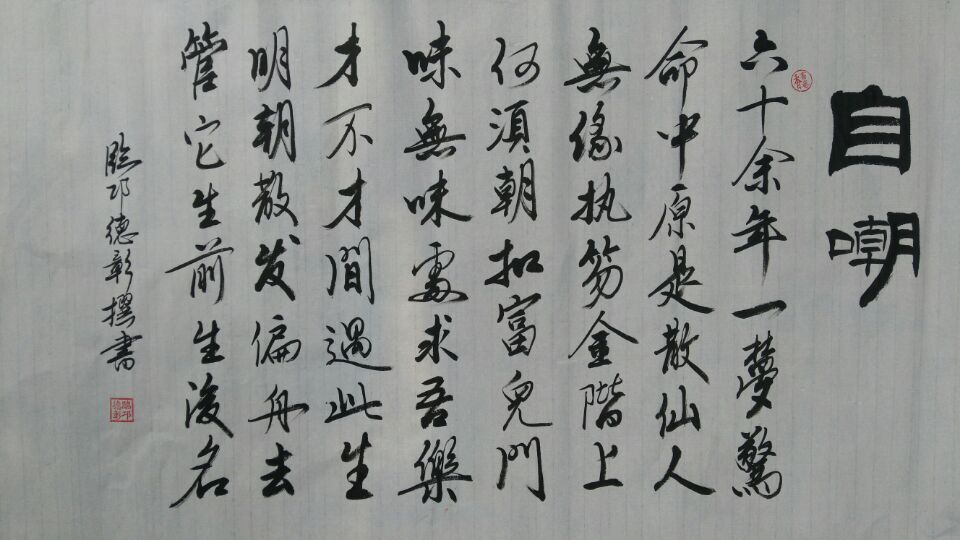 自嘲
六十余年一夢驚
命中原是散仙人
無缘执笏金階上
何須朝扣富兒門
味無味處求吾樂
才不才間過此生
明朝散发偏舟去
管它生前生後名
臨邛德彰撰書